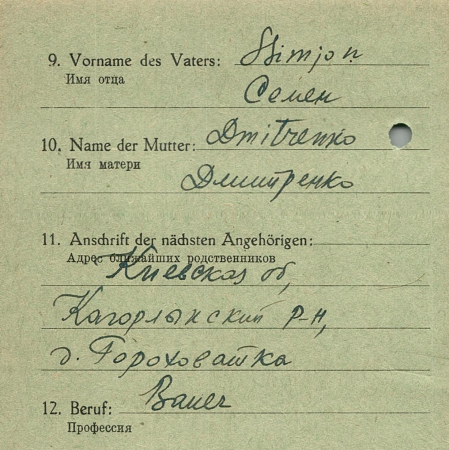 9. Vorname des Vaters: Simjon
Имя отца
Семен
10. Name der Mutter: Dmitrenko
Имя матери
Дмитренко
11. Anschrift der nächsten Angehörigen:
Адрес ближайших родственников
Киевская об,
Кагорлынский р-н,
д. Гороховатка
12. Beruf: Bauer
Профессия